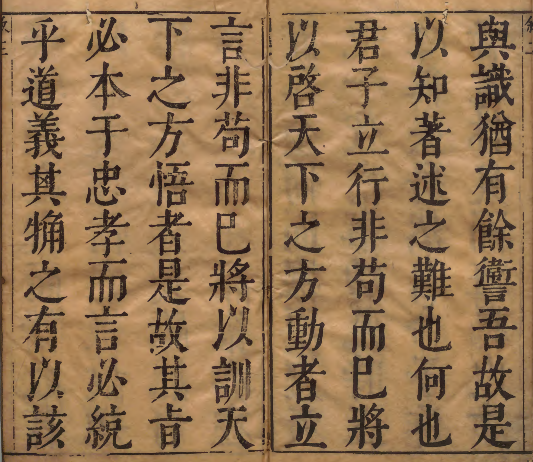 與識猶有餘讏吾故是
以知著述之難也何也
君子立行非苟而已將
以啓天下之方動者立
言非苟而已將以訓天
下之方悟者是故其旨
必本于忠孝而言必統
乎道義其觕之有以該